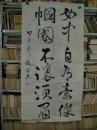 女中自為豪傑
巾幗不讓須眉